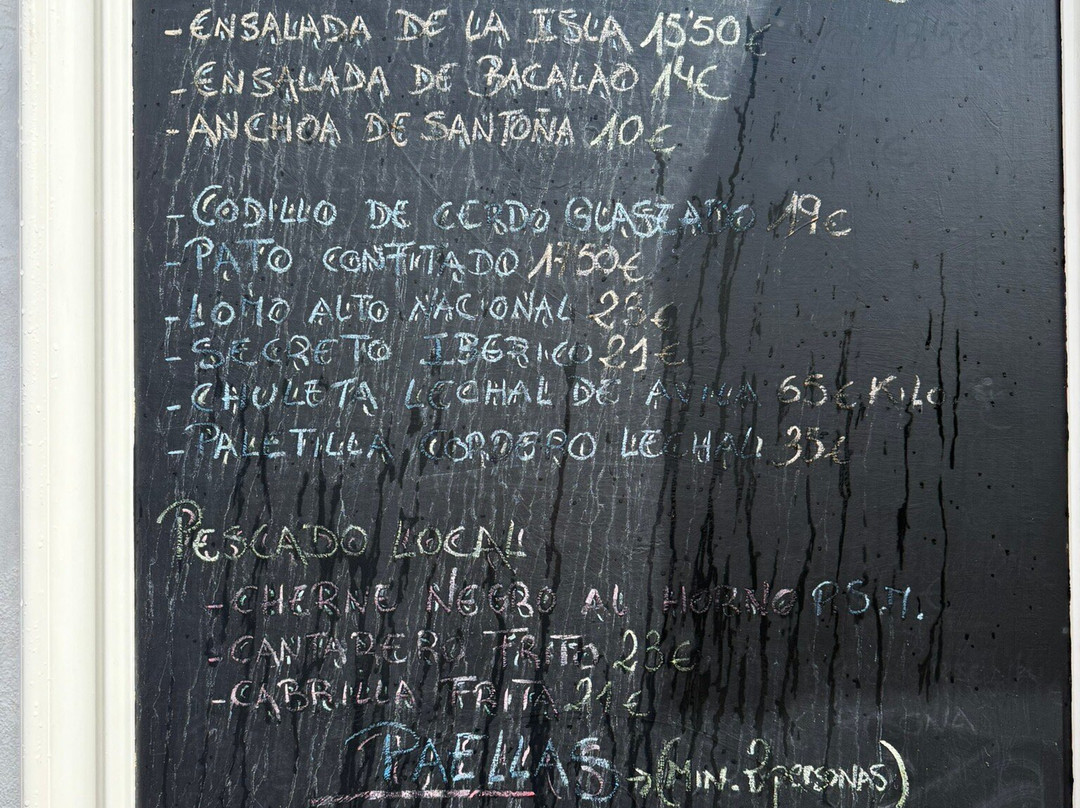 - ENSALADA DE LA ISLA 15'50€
- ENSALADA DE BACALAO 14€
- ANCHOA DE SANTOÑA 10€
- CODILLO DE CERDO GLASEADO 19€
- PATO CONFITADO
- LOMO ALTO NACIONAL
- SECRETO IBERICO 21€
- CHULETA LECHAL DE 65€ KILO
- PALETILLA CORDERO LECHAL 35€
PESCADO LOCAL
- CHERNE NEGRO AL HORNO P.S.M.
- CANTARERO FRITO 23€
- CABRILLA FRITA 21€
PAELLAS → (MIN. 2 PERSONAS)